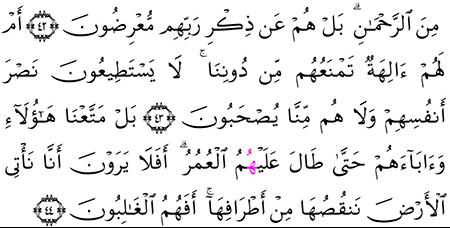 مِنَ ٱلرَّحْمَٰنِ ۗ بَلْ هُمْ عَن ذِكْرِ رَبِّهِم مُّعْرِضُونَ ﴿٤٢﴾ أَمْ
لَهُمْ ءَالِهَةٌ تَمْنَعُهُم مِّن دُونِنَا ۚ لَا يَسْتَطِيعُونَ نَصْرَ
أَنفُسِهِمْ وَلَا هُم مِّنَّا يُصْحَبُونَ ﴿٤٣﴾ بَلْ مَتَّعْنَا هَٰٓؤُلَآءِ
وَءَابَآءَهُمْ حَتَّىٰ طَالَ عَلَيْهِمُ ٱلْعُمُرُ ۗ أَفَلَا يَرَوْنَ أَنَّا نَأْتِى
ٱلْأَرْضَ نَنقُصُهَا مِنْ أَطْرَافِهَآ ۚ أَفَهُمُ ٱلْغَٰلِبُونَ ﴿٤٤﴾